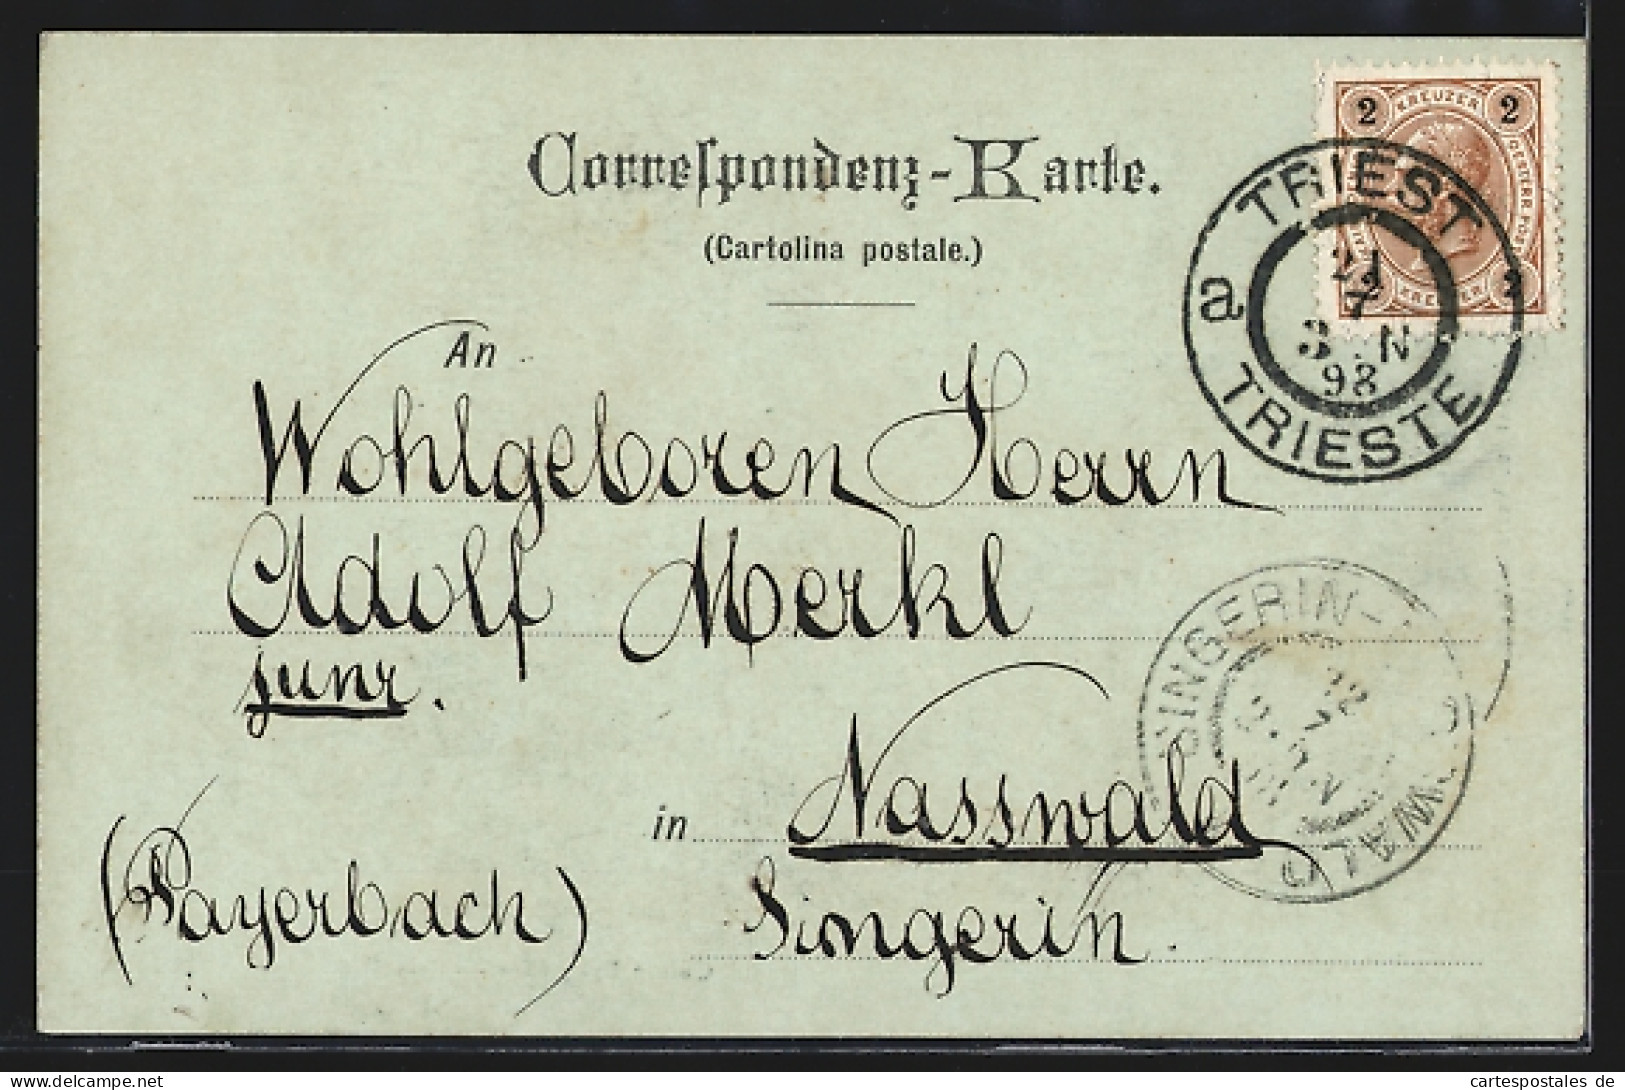 Correspondenz-Karte.
(Cartolina postale.)
2 KREUZER 2
KREUZER
TRIEST
a
7
3 . N
98
TRIESTE
An
Wohlgeboren Herrn
Adolf Merkl
junr.
SINGERIN-
WALD
in Nasswald
(Payerbach)
Singerin.
www.cartespostales.de